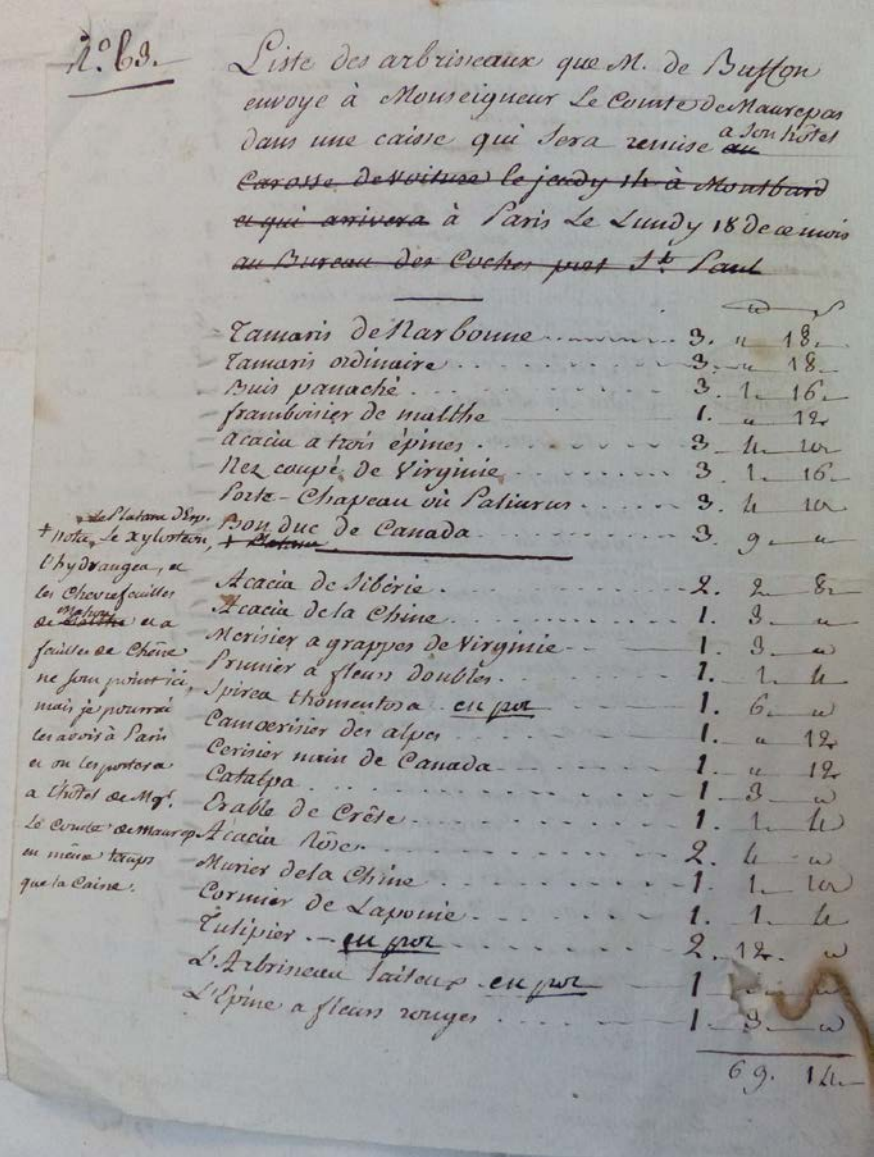 N.º 63.
Liste des arbrisseaux que M. de Buffon
envoye à Monseigneur Le Comte de Maurepas
dans une caisse qui sera remise au a son hôtel
Carosse de voiture le jeudy 14 à Montbard
et qui arrivera à Paris Le Lundy 18 de ce mois
au Bureau des Coches près St. Paul
Tamaris de Narbonne 3. " 18.
Tamaris ordinaire 3. " 18
Buis panaché 3. 1. 16.
framboisier de malthe 1. " 12
acacia a trois épines 3 4 10
Nez coupé de Virginie 3 1. 16.
Porte-Chapeau où Paliurus 3. 4 10
Bonduc de Canada 3. 9 "
+ Platane
Acacia de Sibérie 2. 2 8
Acacia de la Chine 1. 3 "
Merisier a grappes de Virginie 1. 3 "
Prunier a fleurs doubles 1. 1 4
Spirea thomentosa en pot 1. 6 "
Camoerisier des alpes 1. " 12
Cerisier nain de Canada 1. " 12
Catalpa 1 3 "
Erable de Crête 1. 1. 4
Acacia Rôse 2. 4 "
Murier de la Chine 1. 1. 10
Cormier de Laponie 1. 1. 4
Tulipier en pot 2. 12. "
L'Arbrisseau laiteux en pot 1 "
L'Epine a fleurs rouges 1. 3 "
69. 14
+ nota, le Platane d'Esp. Le Xylosteon,
l'hydrangea, et
les chevrefeuilles
de Malthe Mahon et a
feuilles de Chêne
ne sont point ici,
mais je pourrai
les avoir à Paris
et on les portera
a l'hôtel de Mgr.
Le Comte de Maurep.
en même temps
que la Caisse.